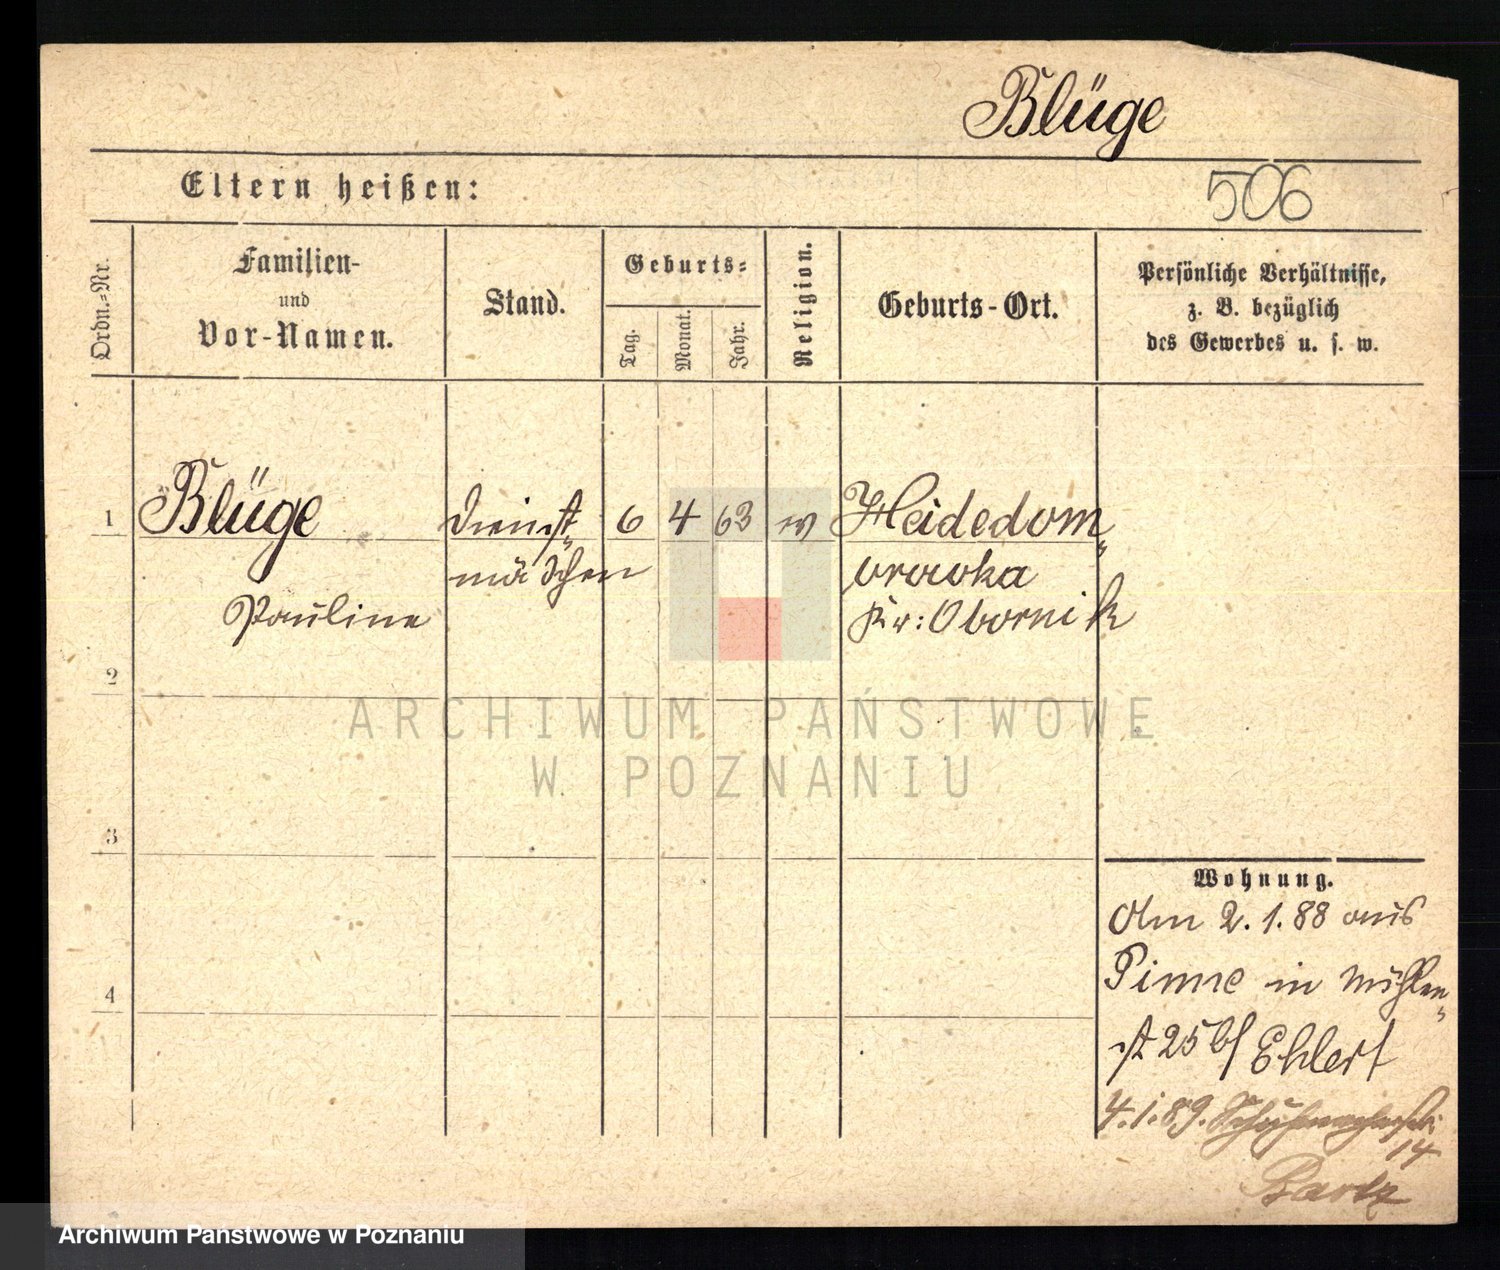 Blüge
Eltern heißen:
506
Ordn.=Nr.
Familien-
und
Vor-Namen.
Stand.
Geburts=
Tag.
Monat.
Jahr.
Religion.
Geburts-Ort.
Persönliche Verhältnisse,
z. B. bezüglich
des Gewerbes u. s. w.
1
Blüge
Dienst-
6
4
63
ev
Heidedom-
mädchen
browka
Pauline
Kr: Obornik
2
ARCHIWUM PAŃSTWOWE
W POZNANIU
3
Wohnung.
Am 2.1.88 aus
Pinne in Mühlen-
4
st 25 b/ Ehlert
4.1.89. Schuhmacherstr:
14
Bartz
Archiwum Państwowe w Poznaniu